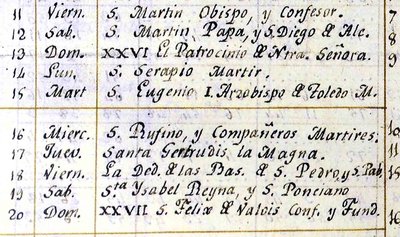 11 Viern. S. Martin Obispo, y Confesor. 7
12 Sab. S. Martin Papa, y S. Diego de Alc. 8
13 Dom. XXVI El Patrocinio de Ntra. Señora. 9
14 Lun. S. Serapio Martir.
15 Mart S. Eugenio I. Arzobispo de Toledo M.
16 Mierc. S. Rufino, y Compañeros Martires. 10
17 Juev. Santa Gertrudis la Magna. 11
18 Viern. La Ded. de las Bas. de S. Pedro, y S. Pab. 15
19 Sab. Sta Ysabel Reyna, y S. Ponciano
20 Dom. XXVII S. Felix de Valois Conf. y Fund. 16